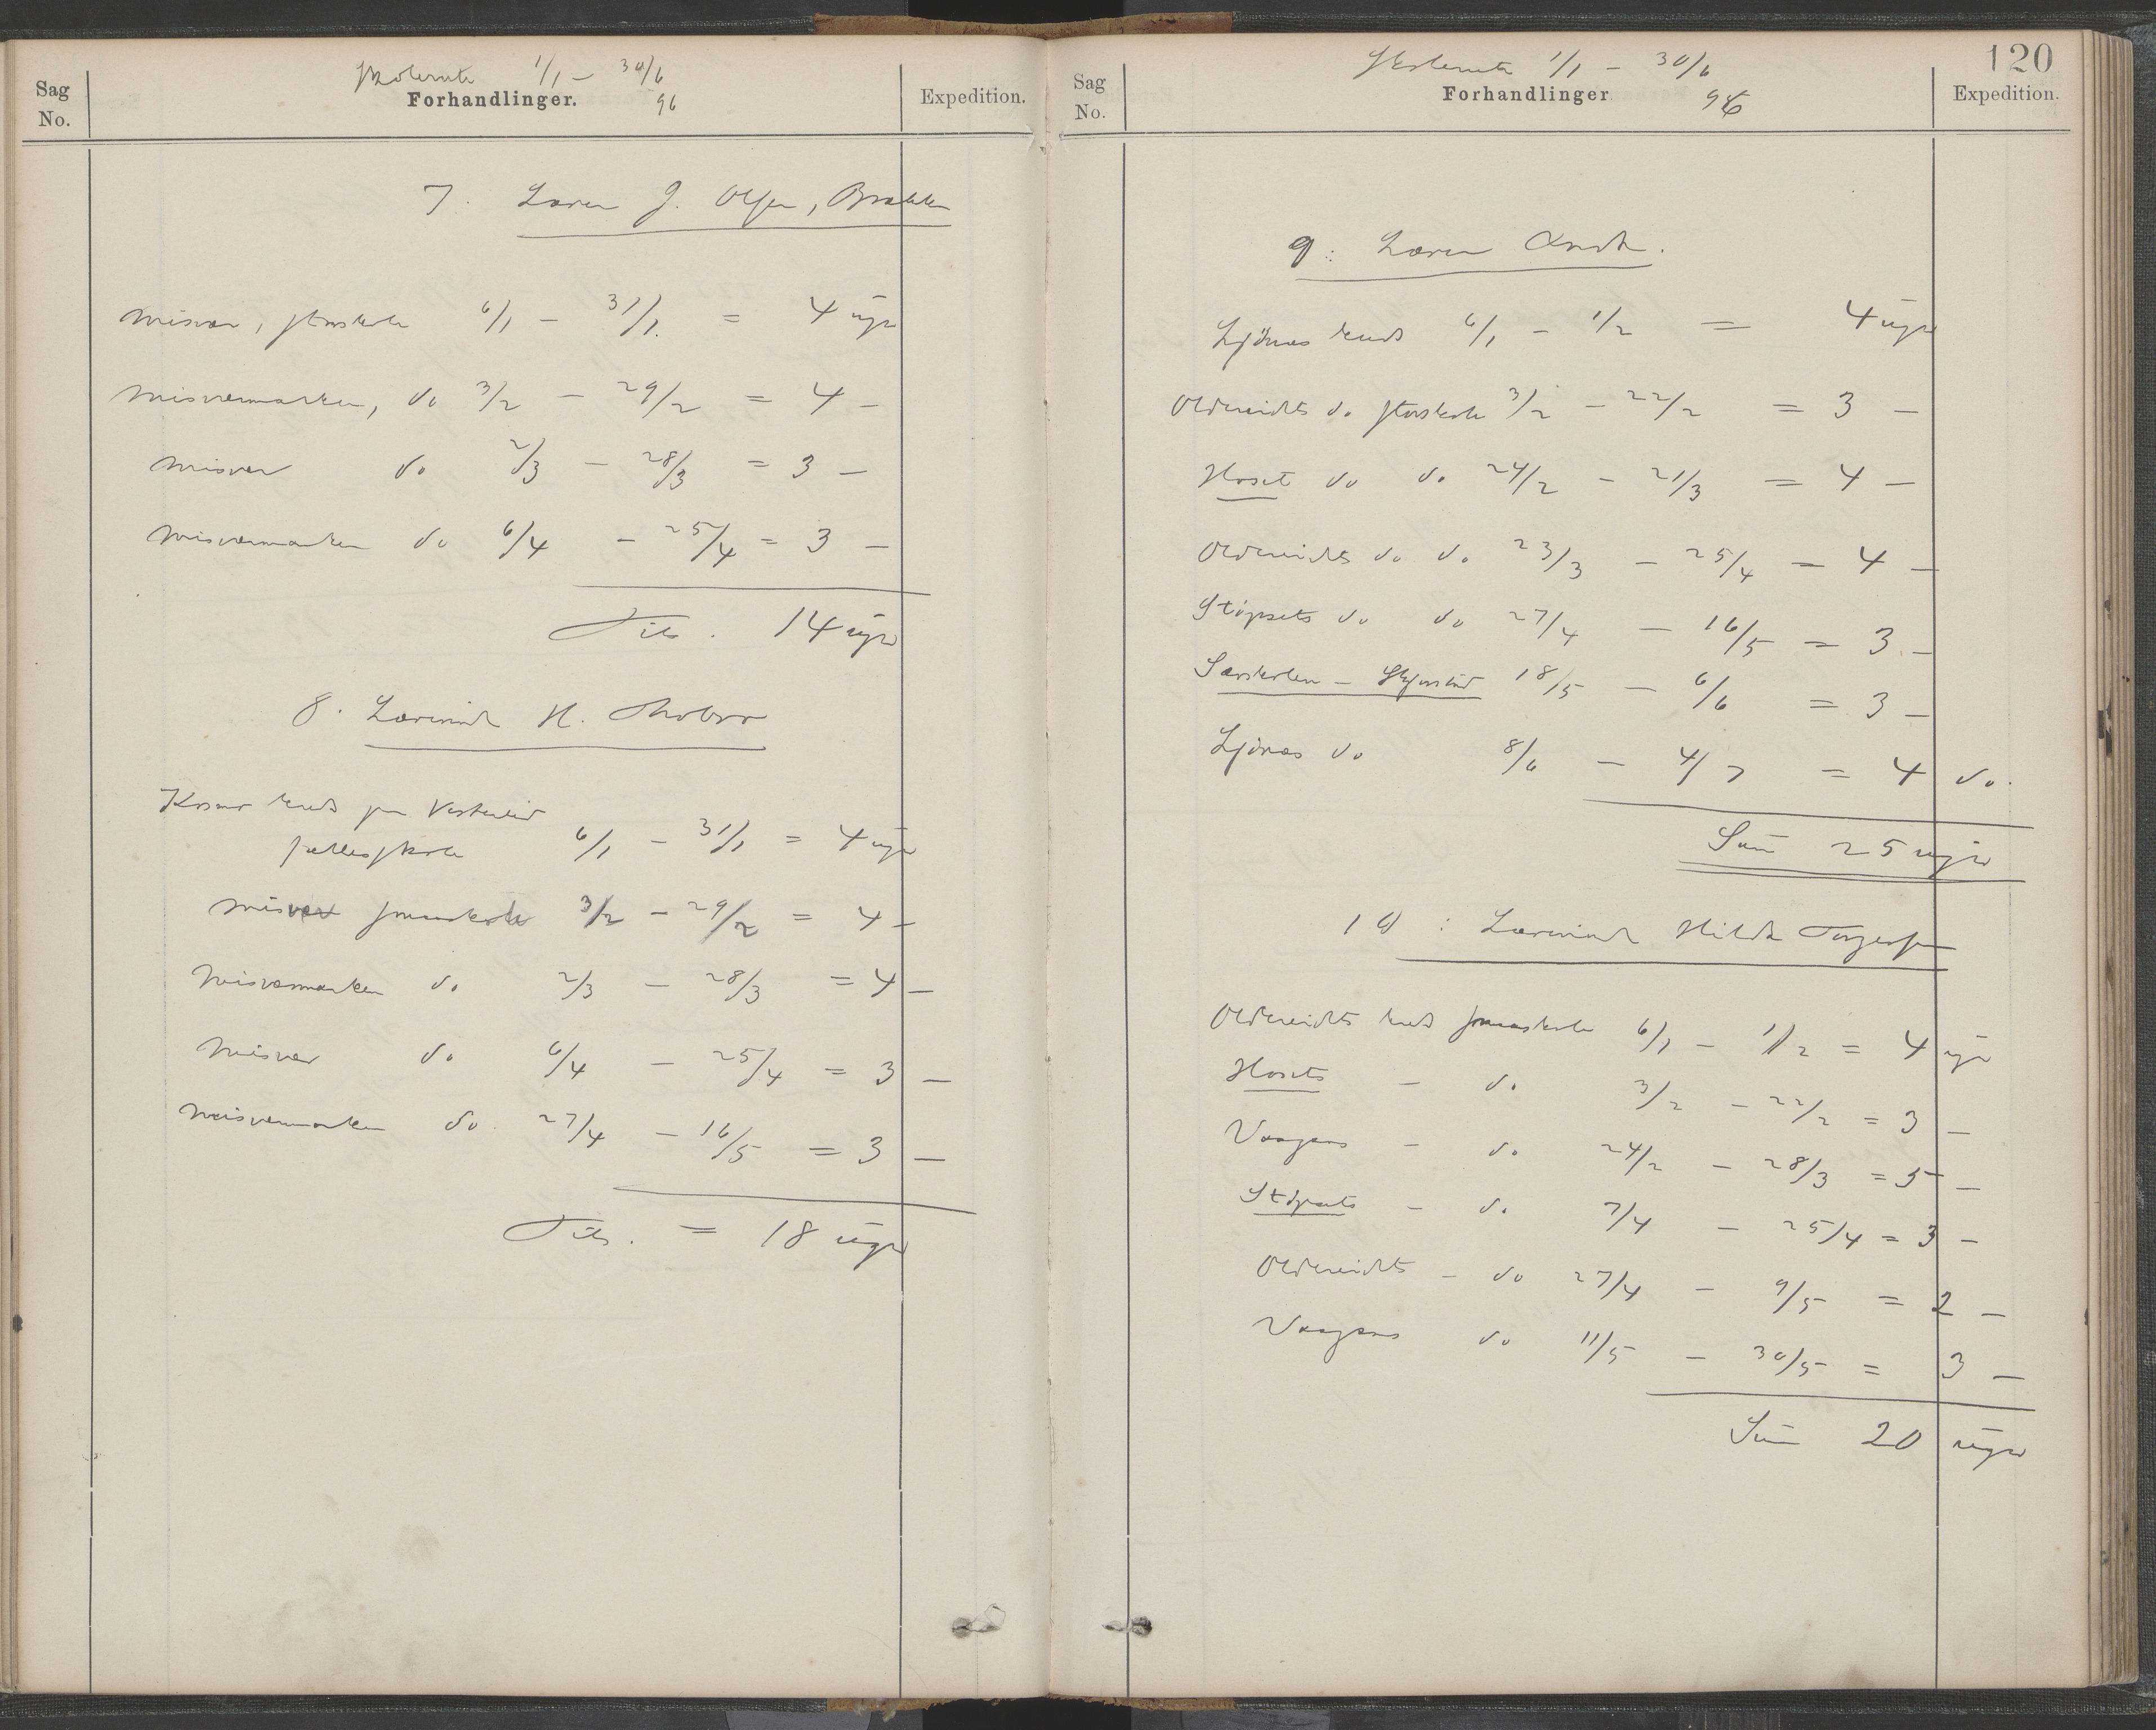 Skoleruta 1/1 - 30/6
Sag No. Forhandlinger. 96 Expedition.
7. Lærer J. Olsen, Brækken
Misvær, storskole 6/1 - 31/1. = 4 uger
Misværmarken, do 3/2 - 29/2 = 4 -
Misvær do 2/3 - 28/3 = 3 -
Misværmarken do 6/4 - 25/4 = 3 -
Tils. 14 uger
8. Lærerinde H.
Kosmo kreds paa Vesterlid
fællesskole 6/1 - 31/1 = 4 uger
Misvær smaaskole 3/2 - 29/2 = 4 -
Misværmarken do 2/3 - 28/3 = 4 -
Misvær do 6/4 - 25/4 = 3 -
Misværmarken do 27/4 - 16/5 = 3 -
Tils. = 18 uger
120
Skoleruta 1/1 - 30/6
Sag No. Forhandlinger 96 Expedition.
9: Lærer
Ljönes kreds 6/1 - 1/2 = 4 uger
Oldereidets do storskole 3/2 - 22/2 = 3 -
Hoset do do 24/2 - 21/3 = 4 -
Oldereidets do do 23/3 - 25/4 = 4 -
Støpsets do do 27/4 - 16/5 = 3 -
Særskolen - 18/5 - 6/6 = 3 -
Ljönes do 8/6 - 4/7 = 4 do.
Sum 25 uger
10: Lærerinde Hilda Torgersen
Oldereidets kreds smaaskole 6/1 - 1/2 = 4 uger
Hosets - do 3/2 - 22/2 = 3 -
Vaagens - do 24/2 - 28/3 = 5 -
Støpsets - do 7/4 - 25/4 = 3 -
Oldereidets - do 27/4 - 9/5 = 2 -
Vaagens do 11/5 - 30/5 = 3 -
Sum 20 uger